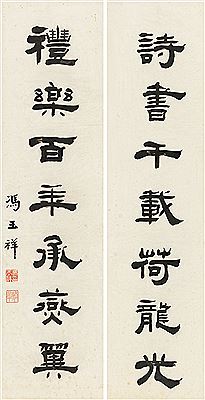 詩書千載荷龍光
禮樂百年承燕翼
馮玉祥